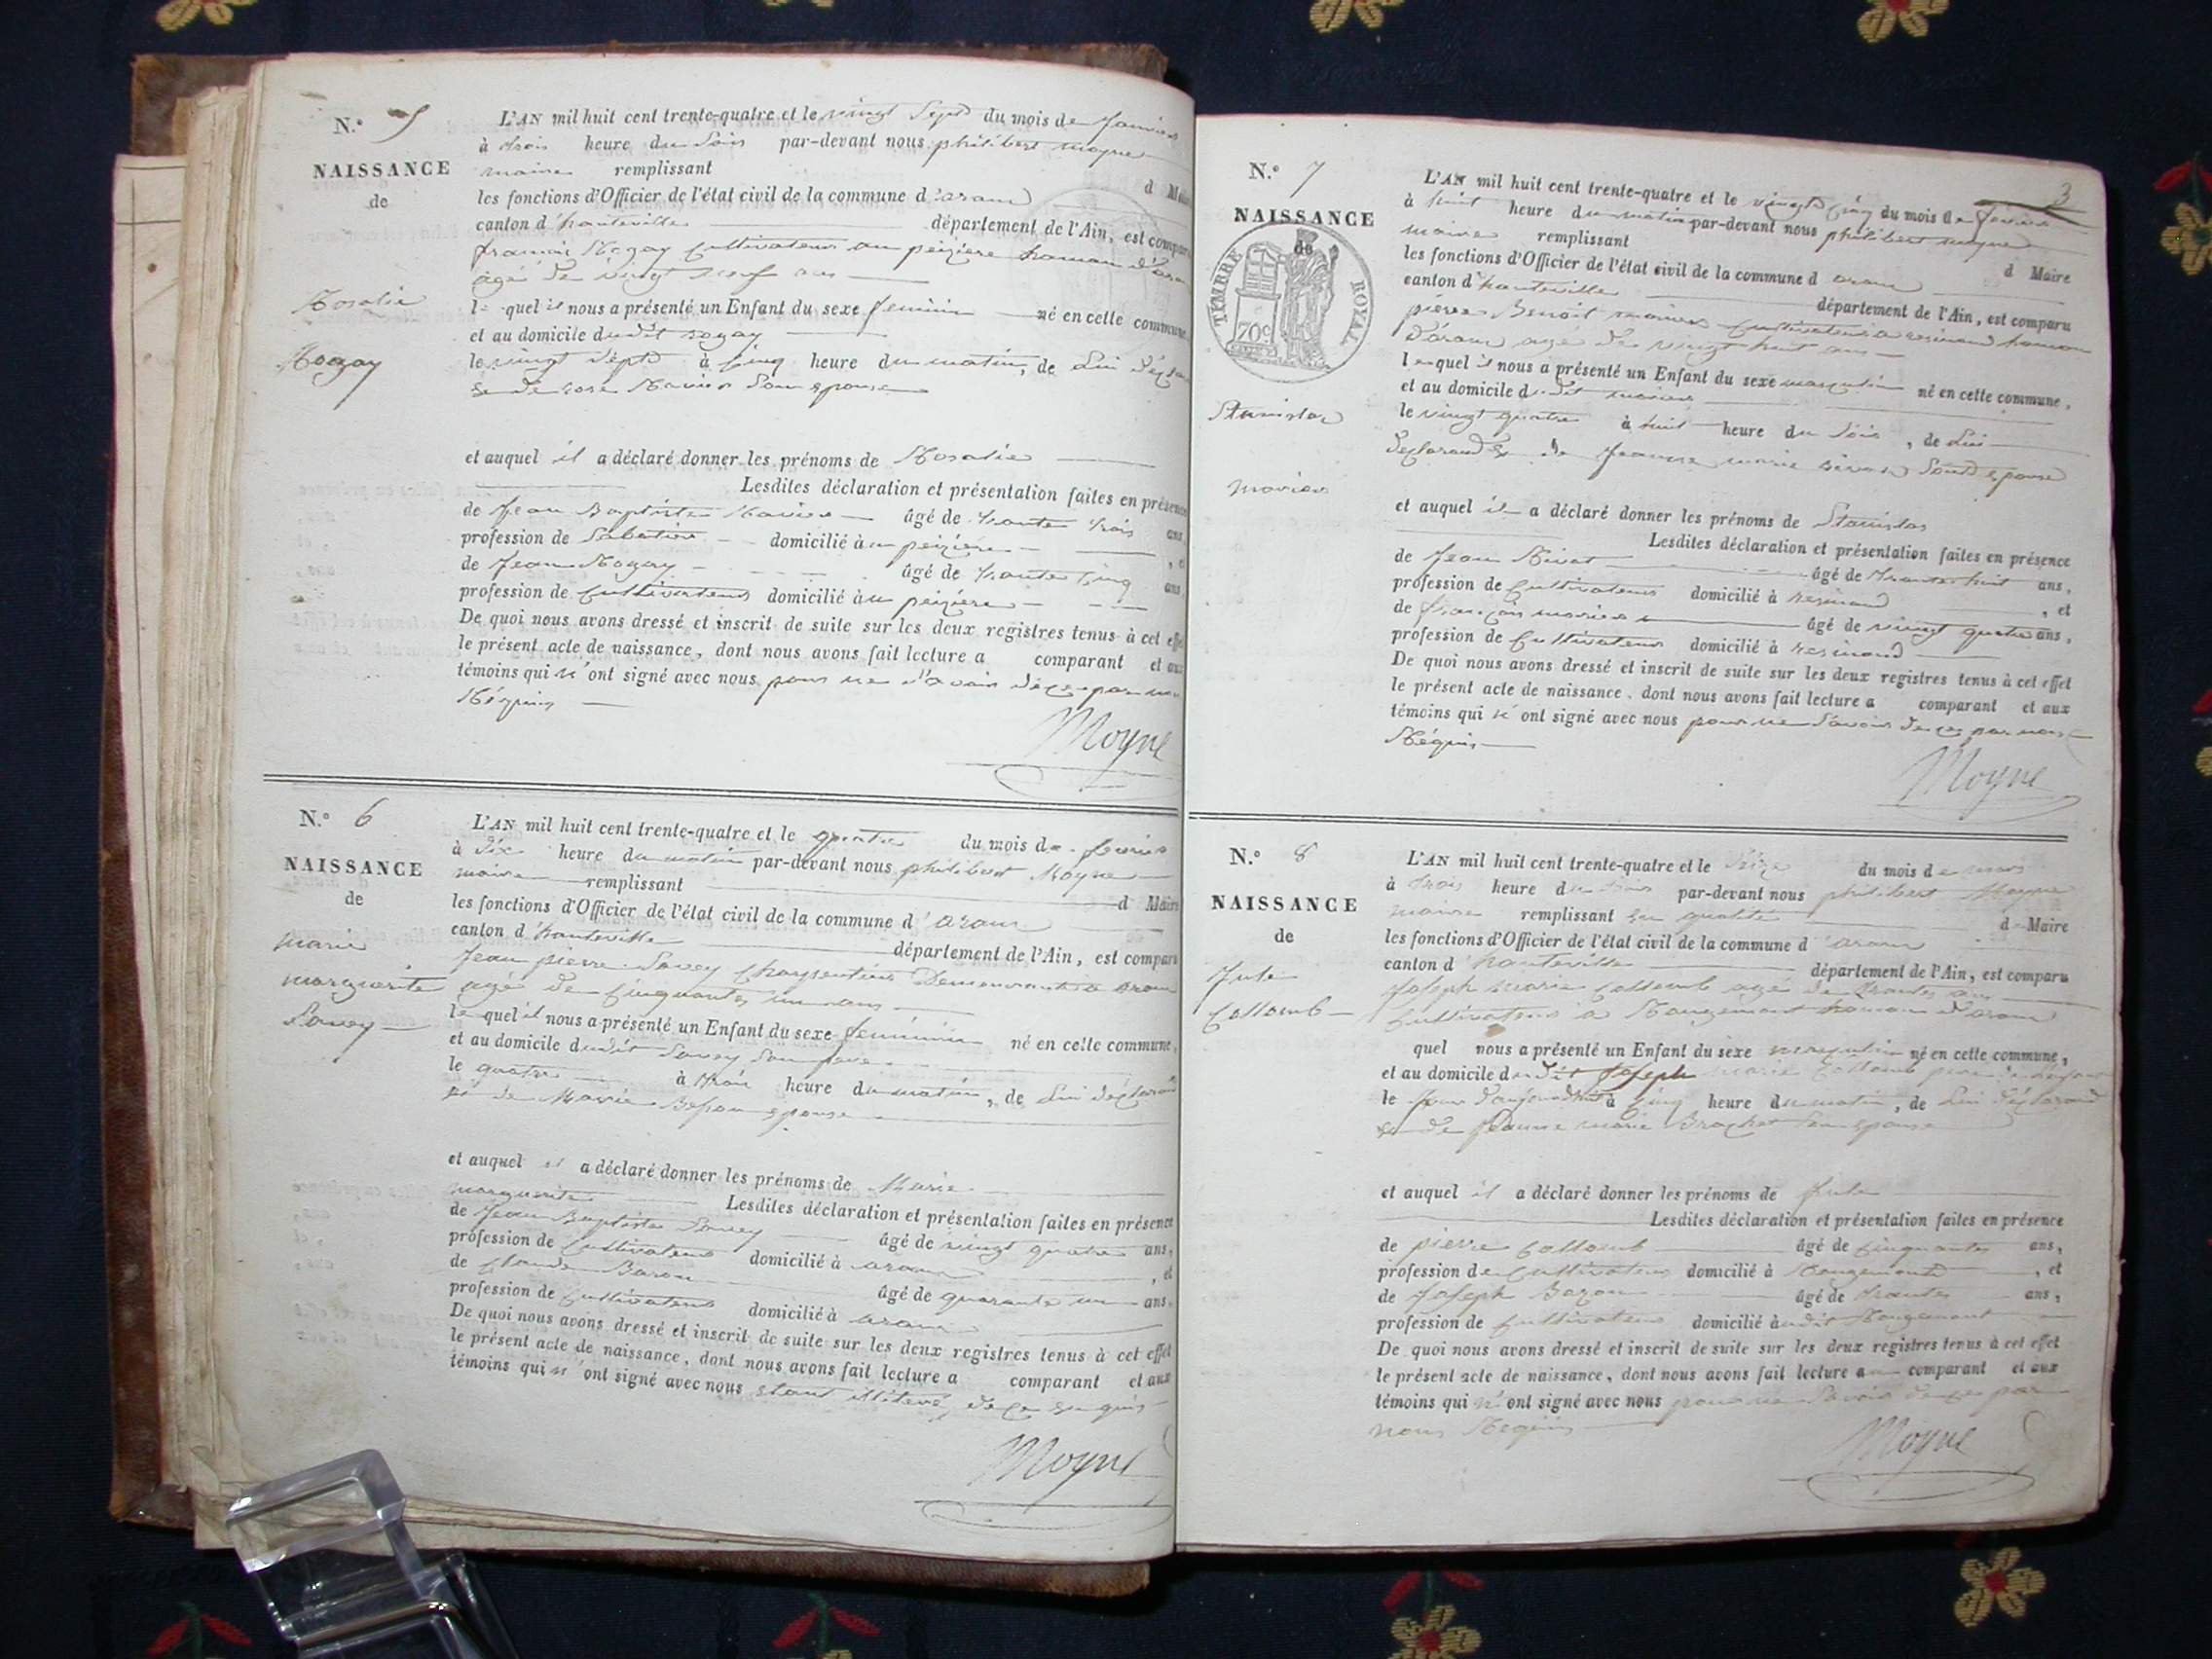 N.° 5
NAISSANCE
de
Rosalie
Rogay
L'AN mil huit cent trente-quatre et le vingt sept du mois de janvier
à trois heure du soir par-devant nous philibert moyne
maire remplissant d Maire
les fonctions d'Officier de l'état civil de la commune d'aranc
canton d'hauteville département de l'Ain, est comparu
françois Rogay cultivateur au peizière hameau d'aranc
agé de vingt neuf ans
le quel il nous a présenté un Enfant du sexe feminin né en cette commune
et au domicile dudit rogay
le vingt sept à cinq heure du matin, de lui déclarant
& de rose Ravier son epouse
et auquel il a déclaré donner les prénoms de Rosalie
Lesdites déclaration et présentation faites en présence
de jean Baptiste Ravier âgé de trante trois ans
profession de Sabotier domicilié au peizière
de jean Rogay âgé de trante cinq ans
profession de cultivateur domicilié au peizière
De quoi nous avons dressé et inscrit de suite sur les deux registres tenus à cet effet
le présent acte de naissance, dont nous avons fait lecture a comparant et aux
témoins qui n'ont signé avec nous pour ne savoir de ce par nous
Réquis
Moyne
N.° 6
NAISSANCE
de
marie
marguerite
Savey
L'AN mil huit cent trente-quatre et le quatre du mois de fevrier
à dix heure du matin par-devant nous philibert Moyne
maire remplissant d Maire
les fonctions d'Officier de l'état civil de la commune d'aranc
canton d'hauteville département de l'Ain, est comparu
jean pierre Savey charpentier Demeurant à aranc
agé de cinquante un ans
le quel il nous a présenté un Enfant du sexe feminin né en cette commune,
et au domicile dudit Savey son pere
le quatre à trois heure du matin, de lui déclarant
et de Marie epouse
et auquel il a déclaré donner les prénoms de Marie
marguerite Lesdites déclaration et présentation faites en présence
de jean Baptiste Savey âgé de vingt quatre ans,
profession de cultivateur domicilié à aranc, et
de claude Baron âgé de quarante un ans,
profession de cultivateur domicilié à aranc
De quoi nous avons dressé et inscrit de suite sur les deux registres tenus à cet effet
le présent acte de naissance, dont nous avons fait lecture a comparant et aux
témoins qui n'ont signé avec nous etant de ce requis
Moyne
3
N.° 7
NAISSANCE
de
TIMBRE ROYAL
70c
Stanislas
moviers
L'AN mil huit cent trente-quatre et le vingt cinq du mois de fevrier
à huit heure du matin par-devant nous philibert moyne
maire remplissant d Maire
les fonctions d'Officier de l'état civil de la commune d aranc
canton d'hauteville département de l'Ain, est comparu
pierre Benoit cultivateur a resinand hameau
d'aranc agé de vingt huit ans
lequel il nous a présenté un Enfant du sexe masculin né en cette commune,
et au domicile dudit
le vingt quatre à huit heure du soir, de lui
declarand & de jeanne marie epouse
et auquel il a déclaré donner les prénoms de Stanislas
Lesdites déclaration et présentation faites en présence
de jean Rivat âgé de trante huit ans,
profession de cultivateur domicilié à resinand, et
de françois âgé de vingt quatre ans,
profession de cultivateur domicilié à resinand
De quoi nous avons dressé et inscrit de suite sur les deux registres tenus à cet effet
le présent acte de naissance, dont nous avons fait lecture a comparant et aux
témoins qui n'ont signé avec nous pour ne savoir de ce par nous
Réquis
Moyne
N.° 8
NAISSANCE
de
jule
Collomb
L'AN mil huit cent trente-quatre et le seize du mois de mars
à trois heure du soir par-devant nous philibert Moyne
maire remplissant en qualité d Maire
les fonctions d'Officier de l'état civil de la commune d'aranc
canton d'hauteville département de l'Ain, est comparu
joseph marie Collomb agé de trantes ans
cultivateur a Rougemont hameau d'aranc
quel nous a présenté un Enfant du sexe masculin né en cette commune,
et au domicile dudit joseph marie Collomb pere
le jour d'aujourd'hui à cinq heure du matin, de lui déclarand
et de jeanne marie Brachet son epouse
et auquel il a déclaré donner les prénoms de jule
Lesdites déclaration et présentation faites en présence
de pierre Collomb âgé de cinquantes ans,
profession de cultivateur domicilié à Rougemont, et
de joseph Bozon âgé de trantes ans,
profession de cultivateur domicilié audit Rougemont
De quoi nous avons dressé et inscrit de suite sur les deux registres tenus à cet effet
le présent acte de naissance, dont nous avons fait lecture au comparant et aux
témoins qui n'ont signé avec nous pour ne savoir de ce par
nous Requis
Moyne